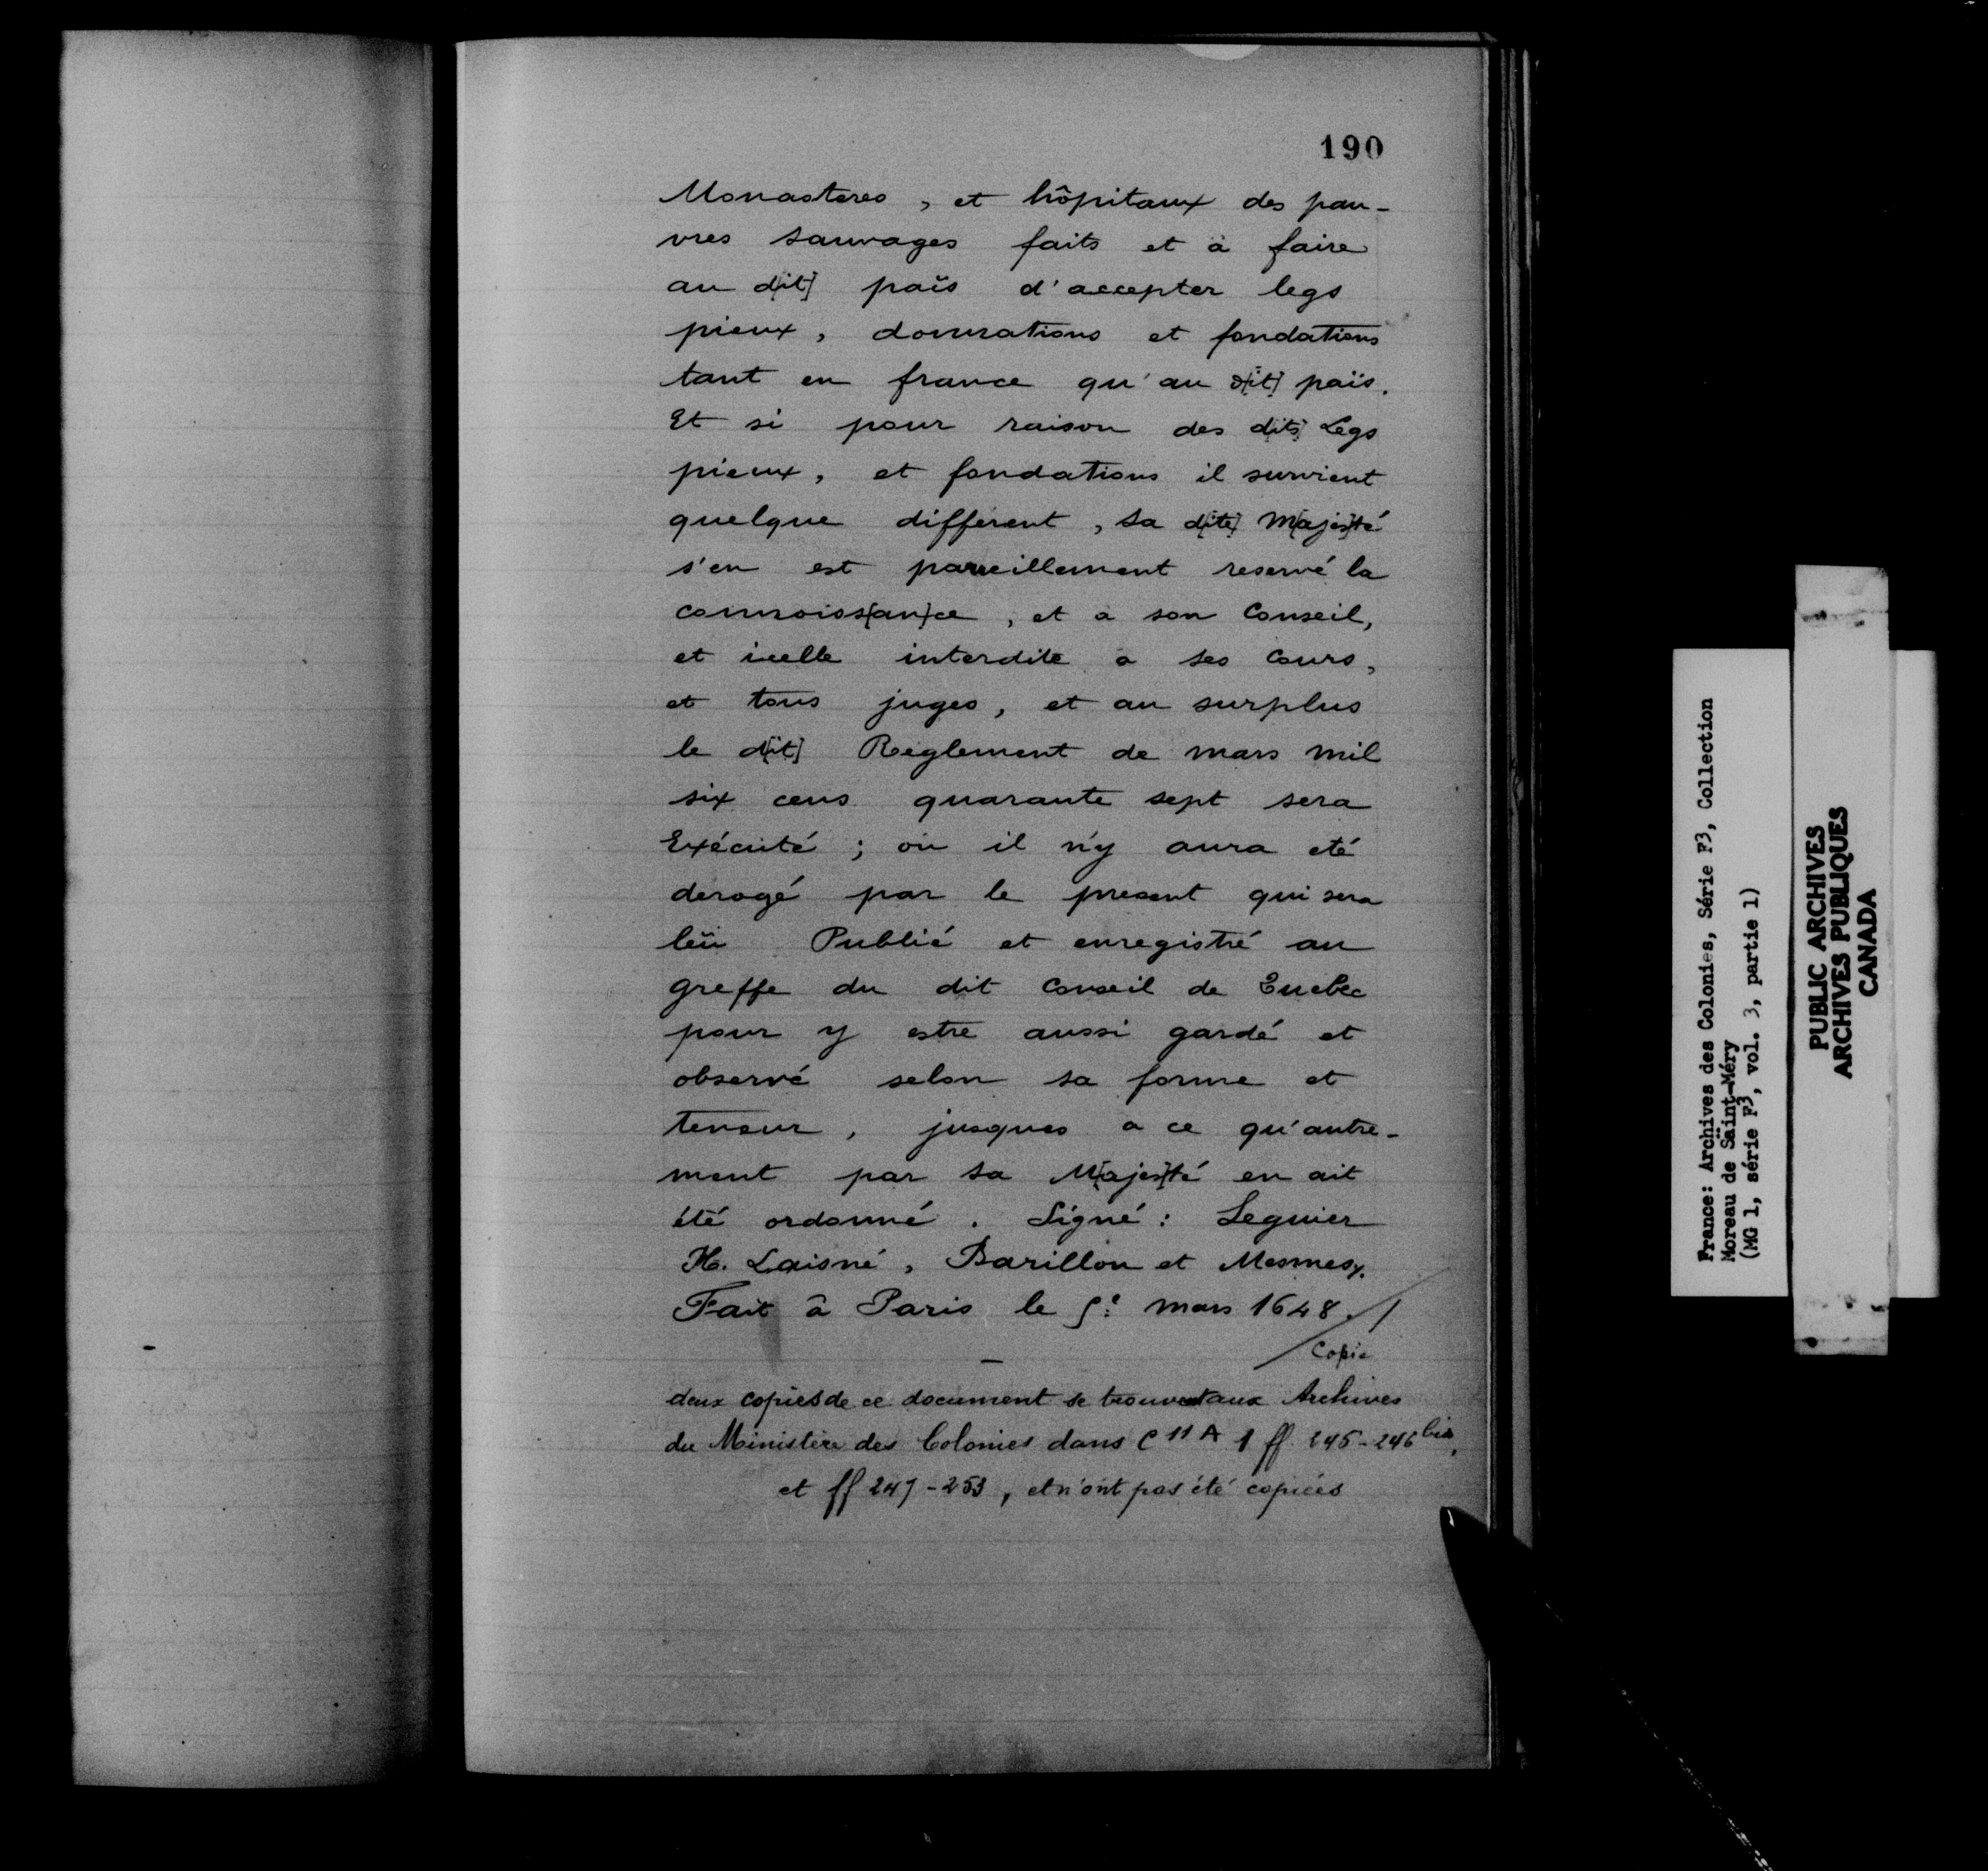 190
Monasteres, et hôpitaux des pau-
vres sauvages faits et à faire
au d[it] païs d'accepter legs
pieux, donnations et fondations
tant en france qu'au d[it] païs.
Et si pour raison des d[its] Legs
pieux, et fondations il survient
quelque different, sa d[ite] M[ajes]té
s'en est pareillement reservé la
connoiss[an]ce, et a son Conseil,
et icelle interdite a ses Cours,
et tous juges, et au surplus
le d[it] Reglement de mars mil
six cens quarante sept sera
Exécuté ; où il n'y aura eté
derogé par le present qui sera
leü Publié et enregistré au
greffe du dit Conseil de Quebec
pour y estre aussi gardé et
observé selon sa forme et
teneur, jusques a ce qu'autre-
ment par sa M[ajes]té en ait
été ordonné. Signé : Seguier
H. Laisné, Barillon et Mesmes.
Fait à Paris le 5e mars 1648./
Copie
deux copies de ce document se trouvent aux Archives
du Ministère des Colonies dans C 11 A 1 ff. 245-246 bis,
et ff 247-253, et n'ont pas été copiées
France: Archives des Colonies, Série F3, Collection
Moreau de Saint-Méry
(MG 1, série F3, vol. 3, partie 1)
PUBLIC ARCHIVES
ARCHIVES PUBLIQUES
CANADA